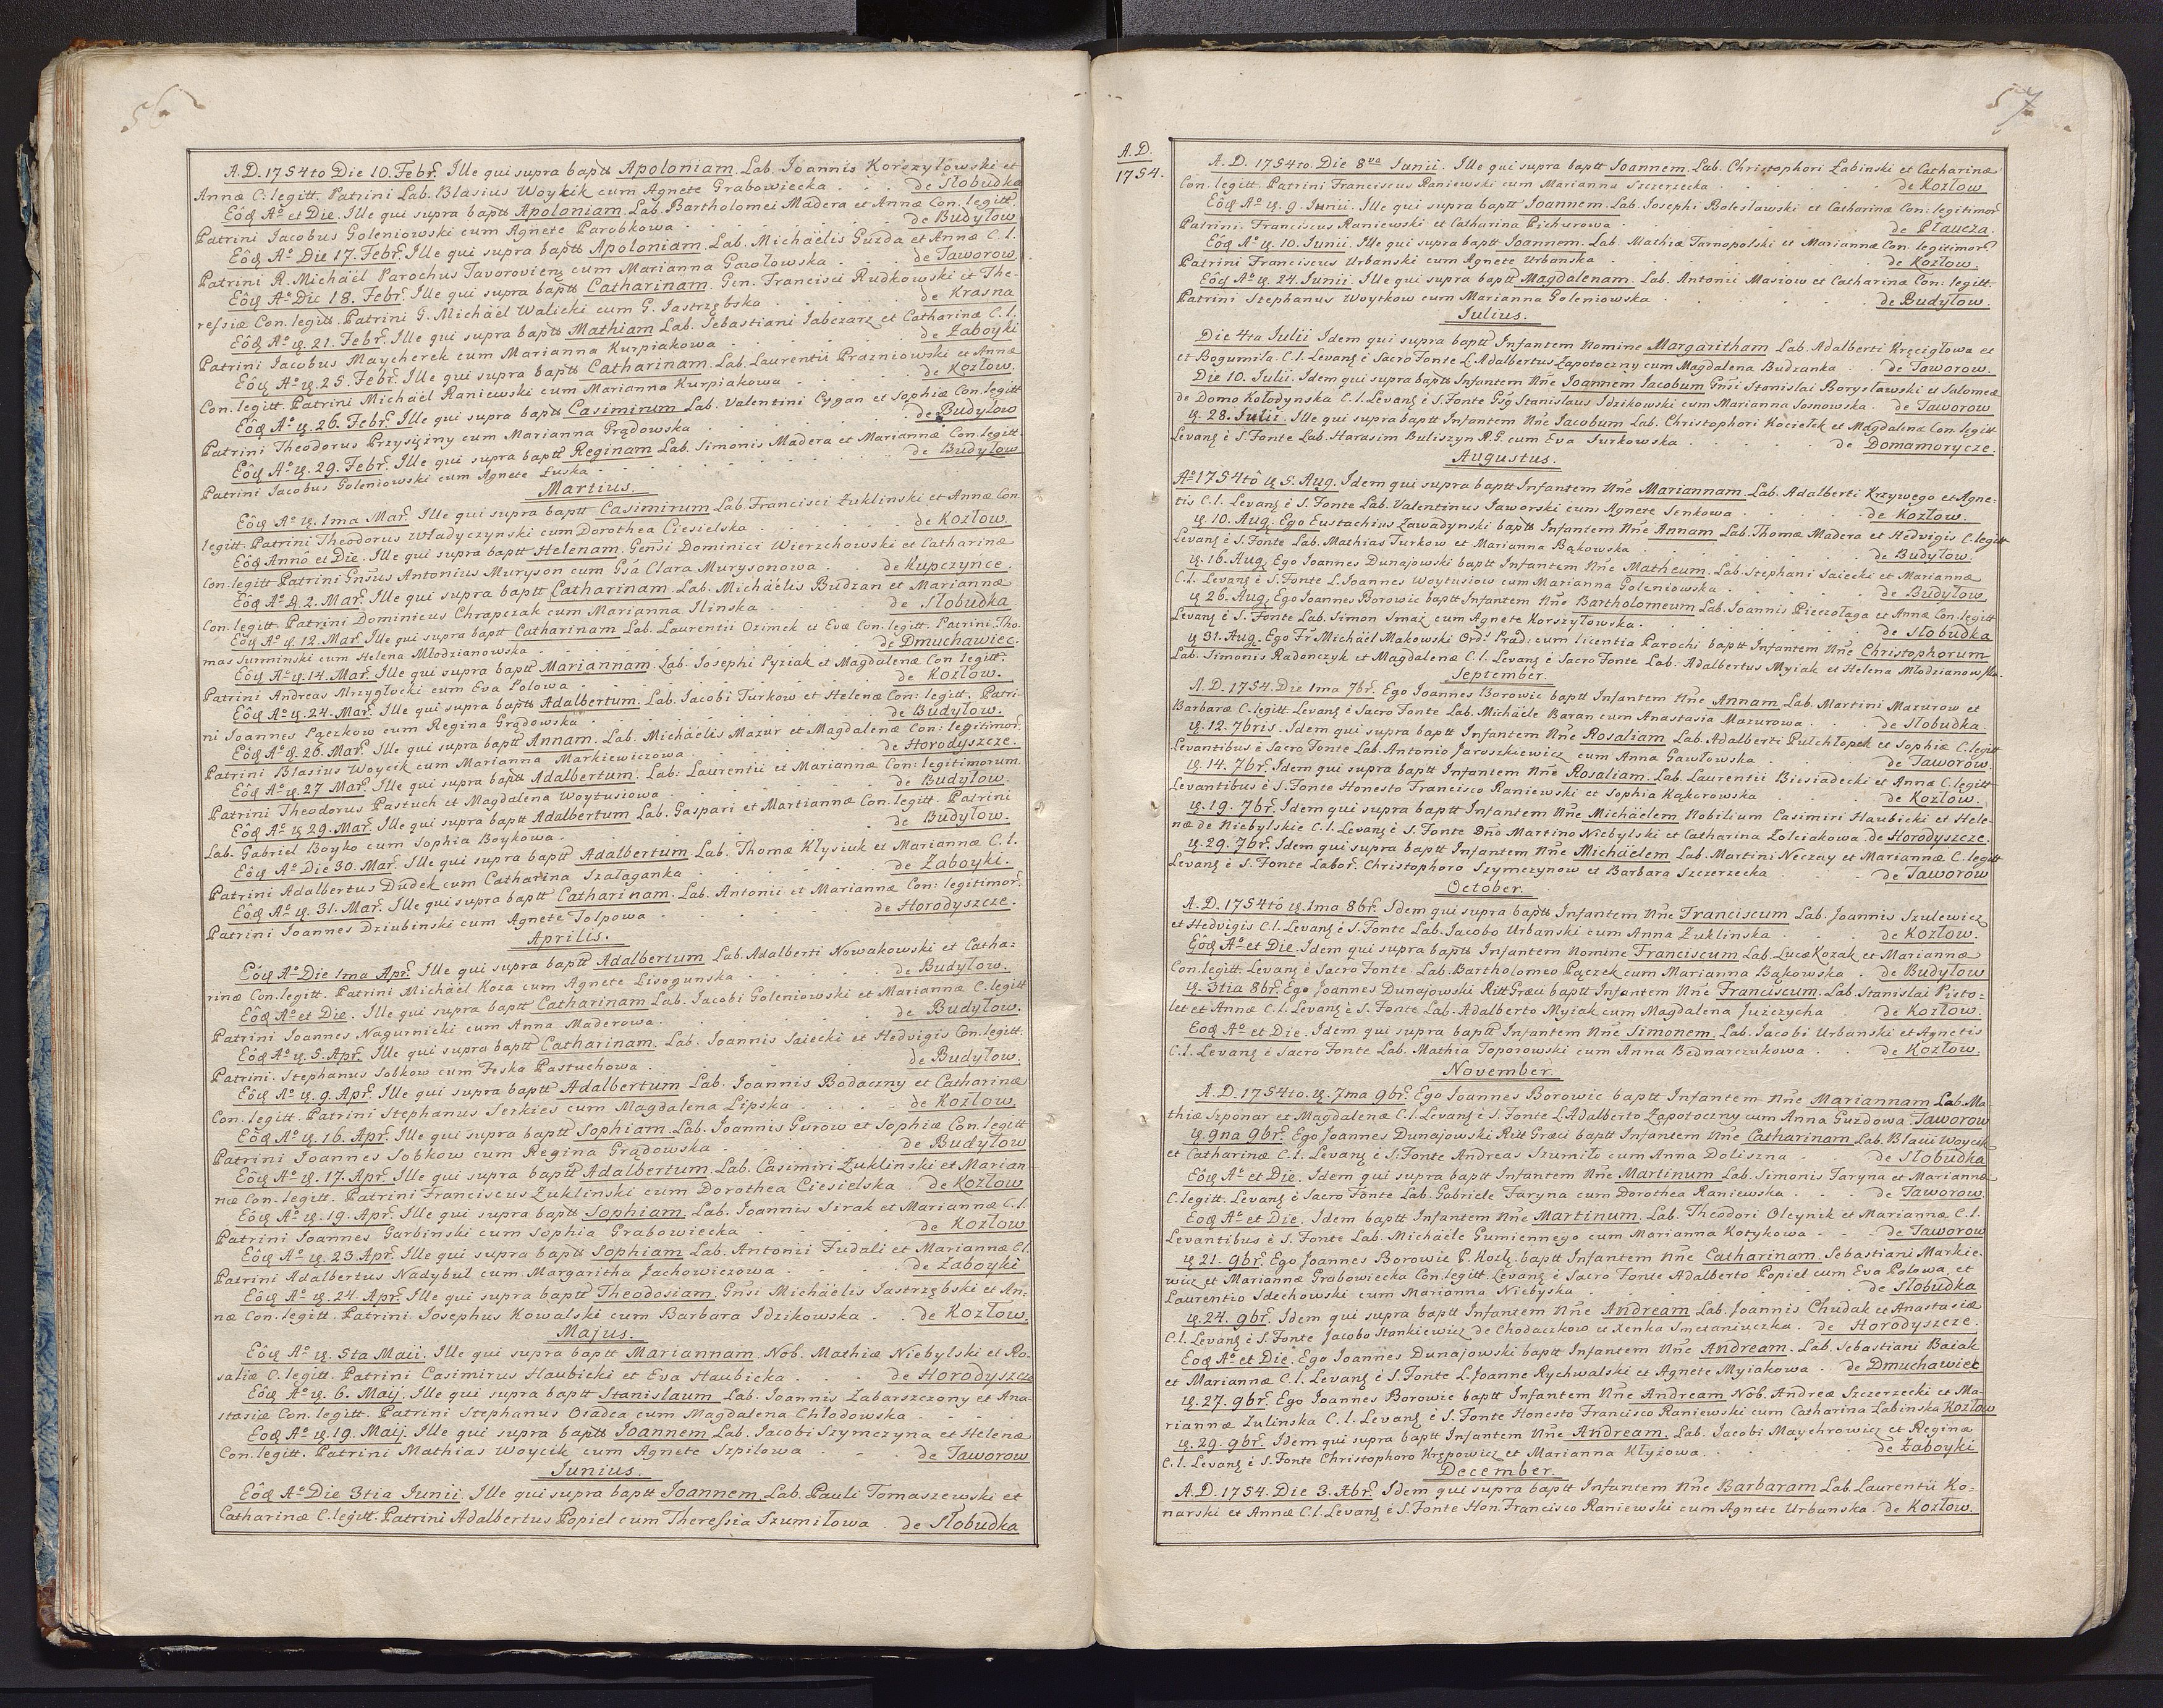 56
A.D. 1754to Die 10. Febr. Ille qui supra baptt Apoloniam. Lab. Joannis Korszyłowski et
Annæ C: legitt. Patrini Lab. Blasius Woycik cum Agnete Grabowiecka . . . de Słobudka
Eôq Aº et Die. Ille qui supra baptt Apoloniam. Lab. Bartholomei Madera et Annæ Con. legitt.
Patrini Iacobus Goleniowski cum Agnete Parobkowa . . . de Budyłow
Eôq Aº Die 17. Febr. Ille qui supra baptt Apoloniam. Lab. Michaëlis Guzda et Annæ C. l.
Patrini R. Michaël Parochus Tavorovien₃ cum Marianna Gawłowska . . . de Taworow
Eôq Aº Die 18. Febr. Ille qui supra baptt Catharinam. Gen. Francisci Rudkowski et The-
resiæ Con. legitt. Patrini G. Michaël Walicki cum G. Jastrzębska . . . de Krasna
Eôq Aº ꝗ. 21. Febr. Ille qui supra baptt Mathiam Lab. Sebastiani Jabczarz et Catharinæ C. l.
Patrini Iacobus Maycherek cum Marianna Kurpiakowa . . . de Zaboyki
Eôq Aº ꝗ. 25. Febr. Ille qui supra baptt Catharinam. Lab. Laurentii Prazniowski et Annæ
Con. legitt. Patrini Michaël Raniewski cum Marianna Kurpiakowa . . . de Kozłow.
Eôq Aº ꝗ. 26. Febr. Ille qui supra baptt Casimirum Lab. Valentini Cygan et Sophiæ Con. legitt
Patrini Theodorus Przysiężny cum Marianna Prądowska . . . de Budyłow
Eôq Aº ꝗ. 29. Febr. Ille qui supra baptt Reginam Lab. Simonis Madera et Mariannæ Con. legitt.
Patrini Iacobus Goleniowski cum Agnete Łuska . . . de Budyłow
Martius.
Eôq Aº ꝗ. 1ma Mar. Ille qui supra baptt Casimirum Lab. Francisci Zuklinski et Annæ Con.
legitt. Patrini Theodorus Władyczynski cum Dorothea Ciesielska . . . de Kozłow.
Eôq Annô et Die. Ille qui supra baptt Helenam. Gensi Dominici Wierzchowski et Catharinæ
Con. legitt Patrini Gnsus Antonius Muryson cum Gsa Clara Murysonowa . . de Kupczynce.
Eôq Aº ꝗ. 2. Mar. Ille qui supra baptt Catharinam. Lab. Michaëlis Budzan et Mariannæ
Con. legitt. Patrini Dominicus Chrapczak cum Marianna Ilinska . . . de Słobudka
Eôq Aº ꝗ. 12. Mar. Ille qui supra baptt Catharinam Lab. Laurentii Ozimek et Evæ Con. legitt. Patrini Tho-
mas Surminski cum Helena Młodzianowska . . . de Dmuchawiec.
Eôq Aº ꝗ. 14. Mar. Ille qui supra baptt Mariannam. Lab. Iosephi Pyziak et Magdalenæ Con legitt.
Patrini Andreas Mrzygłocki cum Eva Polowa . . . de Kozłow.
Eôq Aº ꝗ. 24. Mar. Ille qui supra baptt Adalbertum. Lab. Jacobi Turkow et Helenæ Con: legitt. Patri-
ni Ioannes Pączkow cum Regina Grądowska . . . de Budyłow.
Eôq Aº ꝗ. 26. Mar. Ille qui supra baptt Annam. Lab. Michaëlis Mazur et Magdalenæ Con: legitimor.
Patrini Blasius Woycik cum Marianna Markiewiczowa . . . de Horodyszcze.
Eôq Aº ꝗ. 27 Mar. Ille qui supra baptt Adalbertum. Lab: Laurentii et Mariannæ Con: legitimorum.
Patrini Theodorus Pastuch et Magdalena Woytusiowa . . . de Budyłow.
Eôq Aº ꝗ 29. Mar. Ille qui supra baptt Adalbertum Lab. Gaspari et Martiannæ Con. legitt. Patrini
Lab. Gabriel Boyko cum Sophia Boykowa . . . de Budyłow.
Eôq Aº Die 30. Mar. Ille qui supra baptt Adalbertum. Lab. Thomæ Kłysiuk et Mariannæ C. l.
Patrini Adalbertus Dudek cum Catharina Szałaganka . . . de Zaboyki.
Eôq Aº ꝗ. 31. Mar. Ille qui supra baptt Catharinam. Lab. Antonii et Mariannæ Con: legitimor.
Patrini Ioannes Dziubinski cum Agnete Tolpowa . . . de Horodyszcze.
Aprilis.
Eôq Aº Die 1ma Apr. Ille qui supra baptt Adalbertum Lab. Adalberti Nowakowski et Catha-
rinæ Con. legitt. Patrini Michaël Koza cum Agnete Lisogunska . . . de Budyłow.
Eôq Aº et Die. Ille qui supra baptt Catharinam Lab. Iacobi Goleniowski et Mariannæ C. legitt
Patrini Ioannes Nagurnicki cum Anna Maderowa . . . de Budyłow.
Eôq Aº ꝗ. 5. Apr. Ille qui supra baptt Catharinam. Lab. Ioannis Saiecki et Hedvigis Con. legitt.
Patrini. Stephanus Sobkow cum Feska Pastuchowa . . . de Budyłow.
Eôq Aº ꝗ. 9. Apr. Ille qui supra baptt Adalbertum Lab. Ioannis Badaczny et Catharinæ
Con. legitt. Patrini Stephanus Serkies cum Magdalena Lipska . . . de Kozłow
Eôq Aº ꝗ. 16. Apr. Ille qui supra baptt Sophiam. Lab. Ioannis Gurow et Sophiæ Con. legitt
Patrini Ioannes Sobkow cum Regina Grądowska . . . de Budyłow
Eôq Aº ꝗ. 17. Apr. Ille qui supra baptt Adalbertum. Lab. Casimiri Zuklinski et Marian-
næ Con. legitt. Patrini Franciscus Zuklinski cum Dorothea Ciesielska . de Kozłow
Eôq Aº ꝗ. 19. Apr. Ille qui supra baptt Sophiam. Lab. Ioannis Sirak et Mariannæ C. l.
Patrini Ioannes Garbinski cum Sophia Grabowiecka . . . de Kozłow
Eôq Aº ꝗ. 23. Apr. Ille qui supra baptt Sophiam Lab. Antonii Fudali et Mariannæ C l.
Patrini Adalbertus Nadybuł cum Margaritha Jachowiczowa . . . de Zaboyki
Eôq Aº ꝗ. 24. Apr. Ille qui supra baptt Theodosiam. Gnsi Michaëlis Iastrzębski et An-
næ Con. legitt. Patrini Iosephus Kowalski cum Barbara Idzikowska . . de Kozłow.
Majus.
Eôq Aº ꝗ. 5ta Maii. Ille qui supra baptt Mariannam. Nob. Mathiæ Niebylski et Ro-
saliæ C. legitt. Patrini Casimirus Haubicki et Eva Haubicka . . . de Horodyszcze
Eôq Aº ꝗ. 6. Maij. Ille qui supra baptt Stanislaum Lab. Ioannis Zabarszczony et Ana-
stasiæ Con. legitt. Patrini Stephanus Osadca cum Magdalena Chłodowska . . .
Eoq Aº ꝗ. 19. Maij. Ille qui supra baptt Ioannem Lab. Iacobi Szymczyna et Helenæ
Con. legitt. Patrini Mathias Woycik cum Agnete Szpilowa . . de Taworow
Iunius.
Eôq Aº Die 3tia Iunii. Ille qui supra baptt Ioannem. Lab. Pauli Tomaszewski et
Catharinæ C. legitt. Patrini Adalbertus Popiel cum Theressia Szumiłowa . de Słobudka
57
A.D.
1754.
A. D. 1754to. Die 8va Iunii. Ille qui supra baptt Ioannem. Lab. Christophori Łabinski et Catharinæ
Con. legitt. Patrini Franciscus Raniewski cum Marianna Szczerzecka . . . de Kozłow
Eôq Aº ꝗ. 9. Iunii. Ille qui supra baptt Ioannem. Lab. Iosephi Bolesławski et Catharinæ Con: legitimor.
Patrini. Franciscus Raniewski et Catharina Pichurowa . . . de Płaucza.
Eôq Aº ꝗ. 10. Iunii. Ille qui supra baptt Ioannem. Lab. Mathiæ Tarnopolski et Mariannæ Con. legitimor.
Patrini Franciscus Urbanski cum Agnete Urbanska . . . de Kozłow.
Eôq Aº ꝗ. 24. Iunii. Ille qui supra baptt Magdalenam. Lab. Antonii Masiow et Catharinæ Con: legitt.
Patrini Stephanus Woytkow cum Marianna Goleniowska . . . de Budyłow.
Iulius.
Die 4ta Iulii Idem qui supra baptt Infantem Nomine Margaritham Lab. Adalberti Kręcigłowa et
et Bogumiła. C. l. Levanꝫ è Sacro Fonte L Adalbertus Zapotoczny cum Magdalena Budzanka . . de Taworow.
Die 10. Iulii. Idem qui supra baptt Infantem Nne Ioannem Iacobum Gnsi Stanislai Borysławski et Salomeæ
de Domo Kołodynska C. l. Levanꝫ è S. Fonte Gsq Stanislaus Idzikowski cum Marianna Sosnowska . de Taworow
ꝗ. 28. Iulii. Ille qui supra baptt Infantem Nne Iacobum Lab. Christophori Kociełek et Magdalenæ Con. legitt
Levanꝫ è S. Fonte Lab. Harasim Buliszyn R. G. cum Eva Surkowska . . . de Domamorycze.
Augustus.
Aº 1754tô ꝗ 5. Aug. Idem qui supra baptt Infantem Nne Mariannam Lab. Adalberti Krzywego et Agne-
tis C. l. Levanꝫ è S. Fonte Lab. Valentinus Jaworski cum Agnete Senkowa . . . de Kozłow.
ꝗ. 10. Aug. Ego Eustachius Zawadynski baptt Infantem Nne Annam Lab. Thomæ Madera et Hedvigis C. legitt
Levanꝫ è S. Fonte Lab. Mathias Turkow et Marianna Bąkowska . . . de Budyłow.
ꝗ. 16. Aug. Ego Ioannes Dunajowski baptt Infantem Nne Matheum. Lab. Stephani Saiecki et Mariannæ
C. l. Levanꝫ è S. Fonte L. Ioannes Woytusiow cum Marianna Goleniowska . . . de Budyłow
ꝗ 26. Aug. Ego Ioannes Borowic baptt Infantem Nne Bartholomeum Lab. Ioannis Piecołaga et Annæ Con. legitt
Levanꝫ è S. Fonte Lab. Simon Smaż cum Agnete Korszyłowska . . . de Słobudka
ꝗ 31. Aug. Ego Fr Michaël Makowski Ord. Præd: cum licentia Parochi baptt Infantem Nne Christophorum
Lab. Simonis Radonczyk et Magdalenæ C. l. Levanꝫ è Sacro Fonte Lab. Adalbertus Myiak et Helena Młodzianowska.
September.
A. D. 1754. Die 1ma 7br. Ego Ioannes Borowic baptt Infantem Nne Annam Lab. Martini Mazurow et
Barbaræ C. legitt. Levanꝫ è Sacro Fonte Lab. Michaële Baran cum Anastasia Mazurowa . . de Słobudka.
ꝗ. 12. 7bris. Idem qui supra baptt Infantem Nne Rosaliam Lab. Adalberti Pułchłopek et Sophiæ C. legitt
Levantibus è Sacro Fonte Lab. Antonio Jaroszkiewicz cum Anna Gawłowska . . . de Taworow.
ꝗ. 14. 7br. Idem qui supra baptt Infantem Nne Rosaliam. Lab. Laurentii Biesiadecki et Annæ C. legitt
Levantibus è S. Fonte Honesto Francisco Raniewski et Sophia Kąkorowska . . . de Kozłow.
ꝗ. 19. 7br. Idem qui supra baptt Infantem Nne Michaëlem Nobilium Casimiri Haubicki et Hele-
næ de Niebylskie C. l. Levanꝫ è S. Fonte Dno Martino Niebylski et Catharina Zolciakowa. de Horodyszcze.
ꝗ. 29. 7br. Idem qui supra baptt Infantem Nne Michaëlem Lab. Martini Neczay et Mariannæ C. legitt
Levanꝫ è S. Fonte Labor. Christophoro Szymczynow et Barbara Szczerzecka . . . de Taworow
October.
A. D. 1754tô ꝗ. 1ma 8br. Idem qui supra baptt Infantem Nne Franciscum Lab. Joannis Szulewicz
et Hedvigis C. l. Levanꝫ è S. Fonte Lab. Iacobo Urbanski cum Anna Zuklinska . . . de Kozłow.
Eôq Aº et Die. Idem qui supra baptt Infantem Nomine Franciscum Lab. Lucæ Kozak et Mariannæ
Con. legitt. Levanꝫ è Sacro Fonte. Lab. Bartholomeo Pączek cum Marianna Bąkowska . de Budyłow
ꝗ. 3tia 8br. Ego Joannes Dunajowski Ritt Græci baptt Infantem Nne Franciscum. Lab. Stanislai Pisto-
let et Annæ C. l. Levanꝫ è S. Fonte Lab. Adalberto Myiak cum Magdalena Juzezycha . de Kozłow.
Eoq Aº et Die. Idem qui supra baptt Infantem Nne Simonem. Lab. Iacobi Urbanski et Agnetis
C. l. Levanꝫ è Sacro Fonte Lab. Mathia Toporowski cum Anna Bednarczukowa . . de Kozłow.
November.
A. D. 1754to. ꝗ. 7ma 9br. Ego Ioannes Borowic baptt Infantem Nne Mariannam Lab. Ma-
thiæ Szponar et Magdalenæ C. l. Levanꝫ è S. Fonte L Adalberto Zapotoczny cum Anna Guzdowa. Taworow
ꝗ. 9na 9br. Ego Joannes Dunajowski Ritt Græci baptt Infantem Nne Catharinam Lab. Blasii Woycik
et Catharinæ C. l. Levanꝫ è S. Fonte Andreas Szumiło cum Anna Doliszna . . . de Słobudka
Eôq Aº et Die. Idem qui supra baptt Infantem Nne Martinum Lab. Simonis Faryna et Mariannæ
C. legitt. Levanꝫ è Sacro Fonte Lab. Gabriele Faryna cum Dorothea Raniewska . . . de Taworow
Eoq Aº et Die. Idem baptt Infantem Nne Martinum. Lab. Theodori Oleynik et Mariannæ C. l.
Levantibus è S. Fonte Lab. Michaële Gumiennego cum Marianna Kotykowa . . . de Taworow
ꝗ 21. 9br. Ego Joannes Borowic P. Kozł. baptt Infantem Nne Catharinam. Sebastiani Markie-
wicz et Mariannæ Grabowiecka Con. legitt. Levanꝫ è Sacro Fonte Adalberto Popiel cum Eva Polowa, et
Laurentio Sdechowski cum Marianna Niebyska . . . de Słobudka
ꝗ. 24. 9br. Idem qui supra baptt Infantem Nne Andream Lab. Joannis Chudak et Anastasiæ
C. l. Levanꝫ è S. Fonte Jacobo Stankiewicz de Chodaczkow et Xenka Smetaniuczka . de Horodyszcze.
Eoq Aº et Die. Ego Ioannes Dunajowski baptt Infantem Nne Andream. Lab. Sebastiani Baiak
et Mariannæ C. l. Levanꝫ è S. Fonte L. Joanne Rychwalski et Agnete Myiakowa . . de Dmuchawiec
ꝗ. 27. 9br. Ego Ioannes Borowic baptt Infantem Nne Andream Nob. Andreæ Szczerzecki et Ma-
riannæ Zulinska C. l. Levanꝫ è S. Fonte Honesto Francisco Raniewski cum Catharina Łabinska Kozłow
ꝗ. 29. 9br. Idem qui supra baptt Infantem Nne Andream. Lab. Iacobi Maychrowicz et Reginæ
C. l. Levanꝫ è S. Fonte Christophoro Krępowicz et Marianna Kłyżowa . . . de Zaboyki
December.
A. D. 1754. Die 3. Xbr. Idem qui supra baptt Infantem Nne Barbaram Lab. Laurentii Ko-
narski et Annæ C. l. Levanꝫ è S. Fonte Hon. Francisco Raniewski cum Agnete Urbanska . de Kozłow.